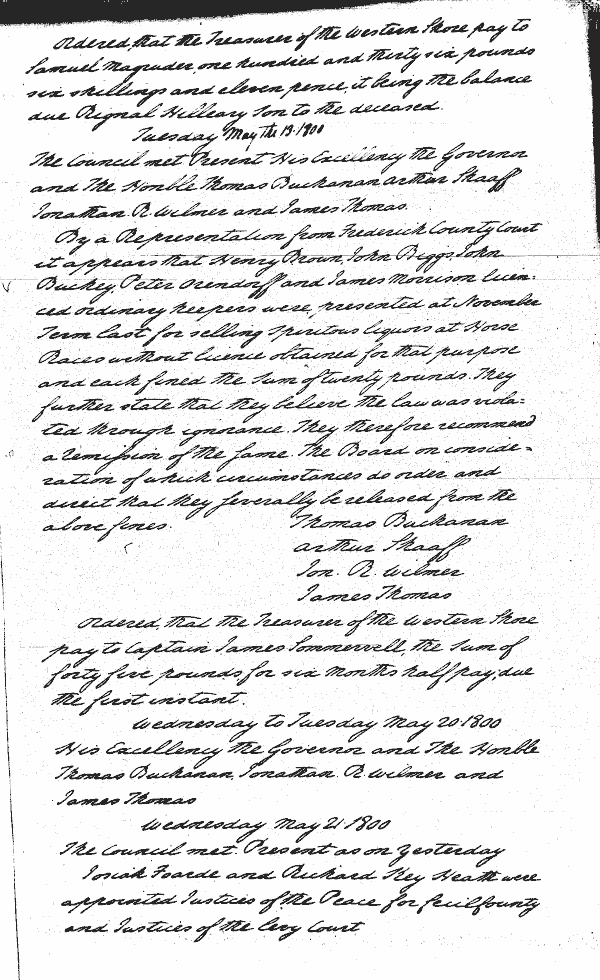 Ordered, that the Treasurer of the Western Shore pay to
Samuel Magruder, one hundred and thirty six pounds
six shillings and eleven pence, it being the balance
due Rignal Hilleary Son to the deceased.
Tuesday May the 13. 1800
The Council met Present His Excellency the Governor
and The Honble Thomas Buchanan Arthur Shaaff
Jonathan R. Wilmer and James Thomas.
By a Representation from Frederick County Court
it appears that Henry Brown, John Biggs, John
Buckey, Peter Orendorff and James Morrison licen-
ced ordinary keepers were, presented at November
Term last for selling spiritous liquors at Horse
Races without licence obtained for that purpose
and each fined the Sum of twenty pounds. They
further state that they believe the law was viola-
ted through ignorance. They therefore recommend
a remission of the same. The Board on conside-
ration of which circumstances do order and
direct that they severally be released from the
above fines.
Thomas Buchanan
Arthur Shaaff
Jon. R. Wilmer
James Thomas
Ordered, that the Treasurer of the Western Shore
pay to Captain James Sommervell, the Sum of
forty five, pounds for six months half pay, due
the first instant.
Wednesday to Tuesday May 20 1800
His Excellency the Governor and The Honble
Thomas Buchanan, Jonathan R. Wilmer and
James Thomas
Wednesday May 21 1800
The Council met. Present as on Yesterday
Josiah Foarde and Richard Key Heath were
appointed Justices of the Peace for Cecil County
and Justices of the Levy Court